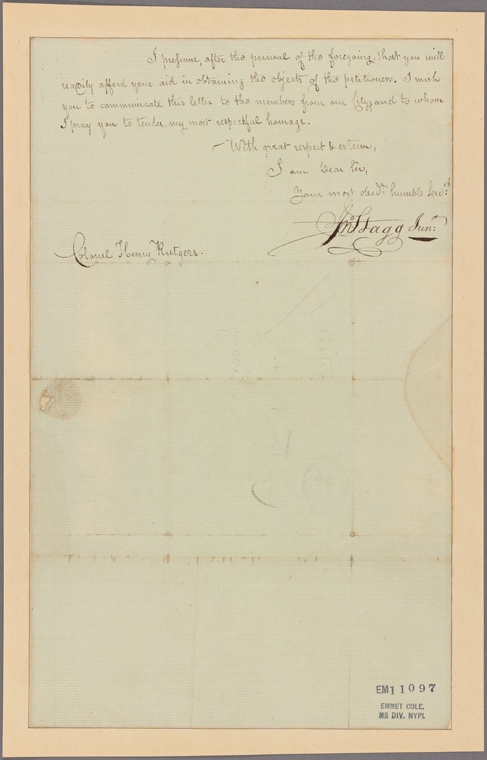 I presume, after the perusal of the foregoing, that you will
readily afford your aid in obtaining the objects of the petitioners. I wish
you to communicate this letter to the members from our City, and to whom
I pray you to tender my most respectful homage.
With great respect & esteem,
I am Dear Sir,
Your most obedt. humble Servt.
Jno Stagg Junr.
Colonel Henry Rutgers.
EM11097
EMMET COLL.
MS DIV. NYPL